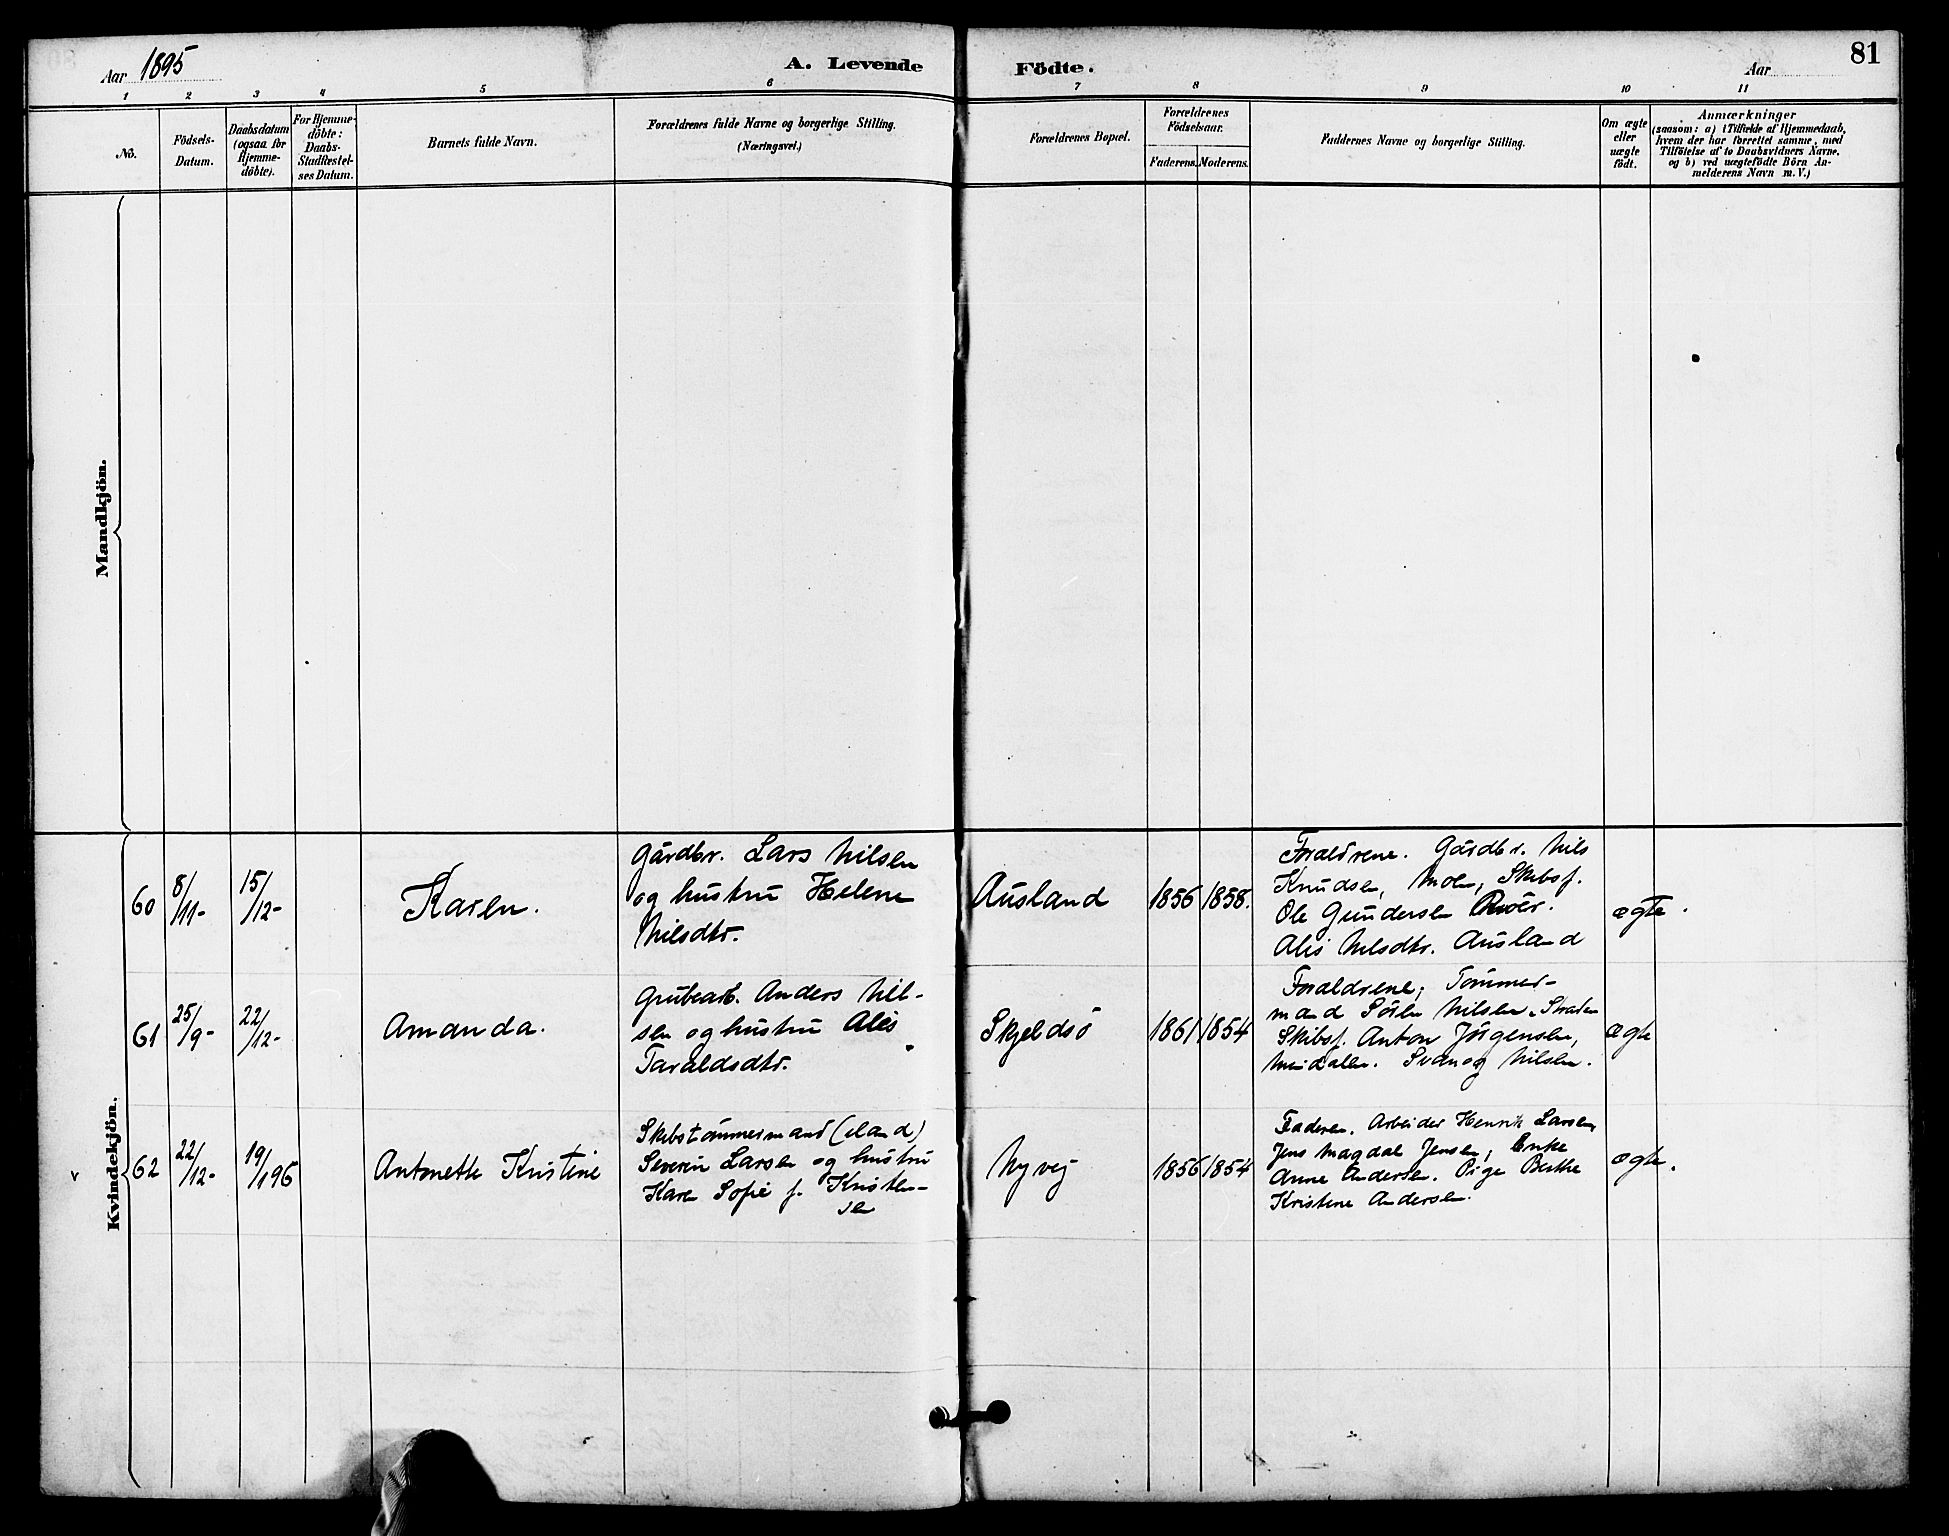 Aar 1895
A. Levende Födte.
Aar
81
1 2 3 4 5 6 7 8 9 10 11
No.
Födsels-
Datum.
Daabsdatum
(ogsaa for
Hjemme-
döbte).
For Hjemme-
döbte:
Daabs-
Stadfæstel-
ses Datum.
Barnets fulde Navn.
Forældrenes fulde Navne og borgerlige Stilling.
(Næringsvei.)
Forældrenes Bopæl.
Forældrenes
Födselsaar.
Faderens. Moderens.
Faddernes Navne og borgerlige Stilling.
Om ægte
eller
uægte
født.
Anmærkninger
(saasom: a) i Tilfælde af Hjemmedaab,
hvem der har forrettet samme, med
Tilföielse af to Daabsvidners Navne,
og b) ved uægtefödte Börn An-
melderens Navn m. V.)
Mandkjön.
Kvindekjön.
60
8/11-
15/12-
Karen.
Gårdbr. Lars Nilsen
og hustru Helene
Nilsdtr.
Ausland
1856
1858.
Forældrene. Gårdbr. Nils
Knudsen, Molen, Skibsf.
Ole Gundersen
Alis Nilsdtr. Ausland
ægte.
61
25/9-
22/12-
Amanda.
Grubearb. Anders Nil-
sen og hustru Alis
Taraldsdtr.
Skjeldsö
1861
1854
Forældrene; Tömmer-
mand Sören Nilsen, Straten
Skibsf. Anton Jörgensen,
Nilsen.
ægte
v
62
22/12-
19/1 96
Antonette Kristine
Skibstömmermand (eland)
Severin Larsen og hustru
Karen Sofie f. Kristen-
sen
Nyvej
1856
1854
Faderen. Arbeider Henrik Larsen,
Jens Magdal Jensen, Enke
Anne Andersen. Pige Berthe
Kristine Andersen.
ægte.